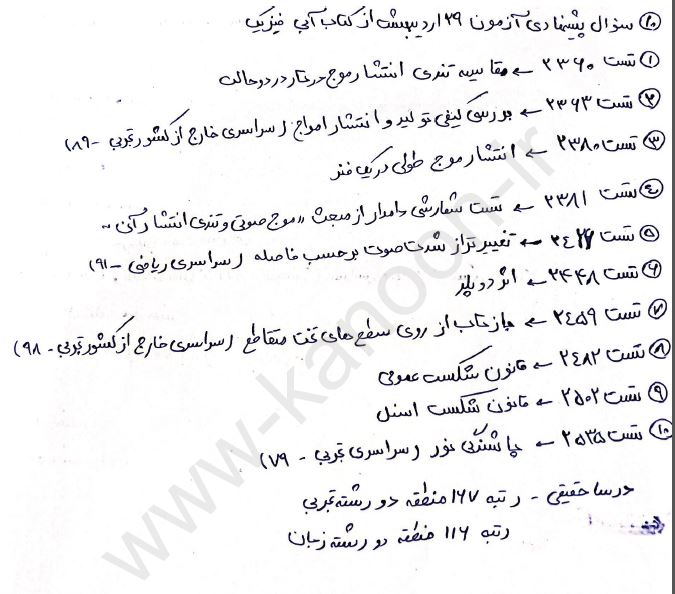 ۱۰ سؤال پیشنهادی آزمون ۲۹ اردیبهشت از کتاب آبی فیزیک
۱ تست ۲۳۶۰ ← مقایسه تندی انتشار موج در تار در دو حالت
۲ تست ۲۳۶۳ ← بررسی کیفی تولید و انتشار امواج (سراسری خارج از کشور تجربی - ۸۹)
۳ تست ۲۳۸۰ ← انتشار موج طولی در یک فنر
۴ تست ۲۳۸۱ ← تست شمارشی دامدار از مبحث «موج صوتی و تندی انتشار آن»
۵ تست ← تغییر تراز شدت صوت بر حسب فاصله (سراسری ریاضی - ۹۱)
۶ تست ۲۴۴۸ ← اثر دوپلر
۷ تست ۲۴۵۹ ← بازتاب از روی سطح های تخت متقاطع (سراسری خارج از کشور تجربی - ۹۸)
۸ تست ۲۴۸۲ ← قانون شکست عمومی
۹ تست ۲۵۰۲ ← قانون شکست اسنل
۱۰ تست ۲۵۳۵ ← پاشندگی نور (سراسری تجربی - ۷۹)
درسا حقیقی - رتبه ۱۶۷ منطقه دو رشته تجربی
رتبه ۱۱۶ منطقه دو رشته زبان
www.kanoon.ir